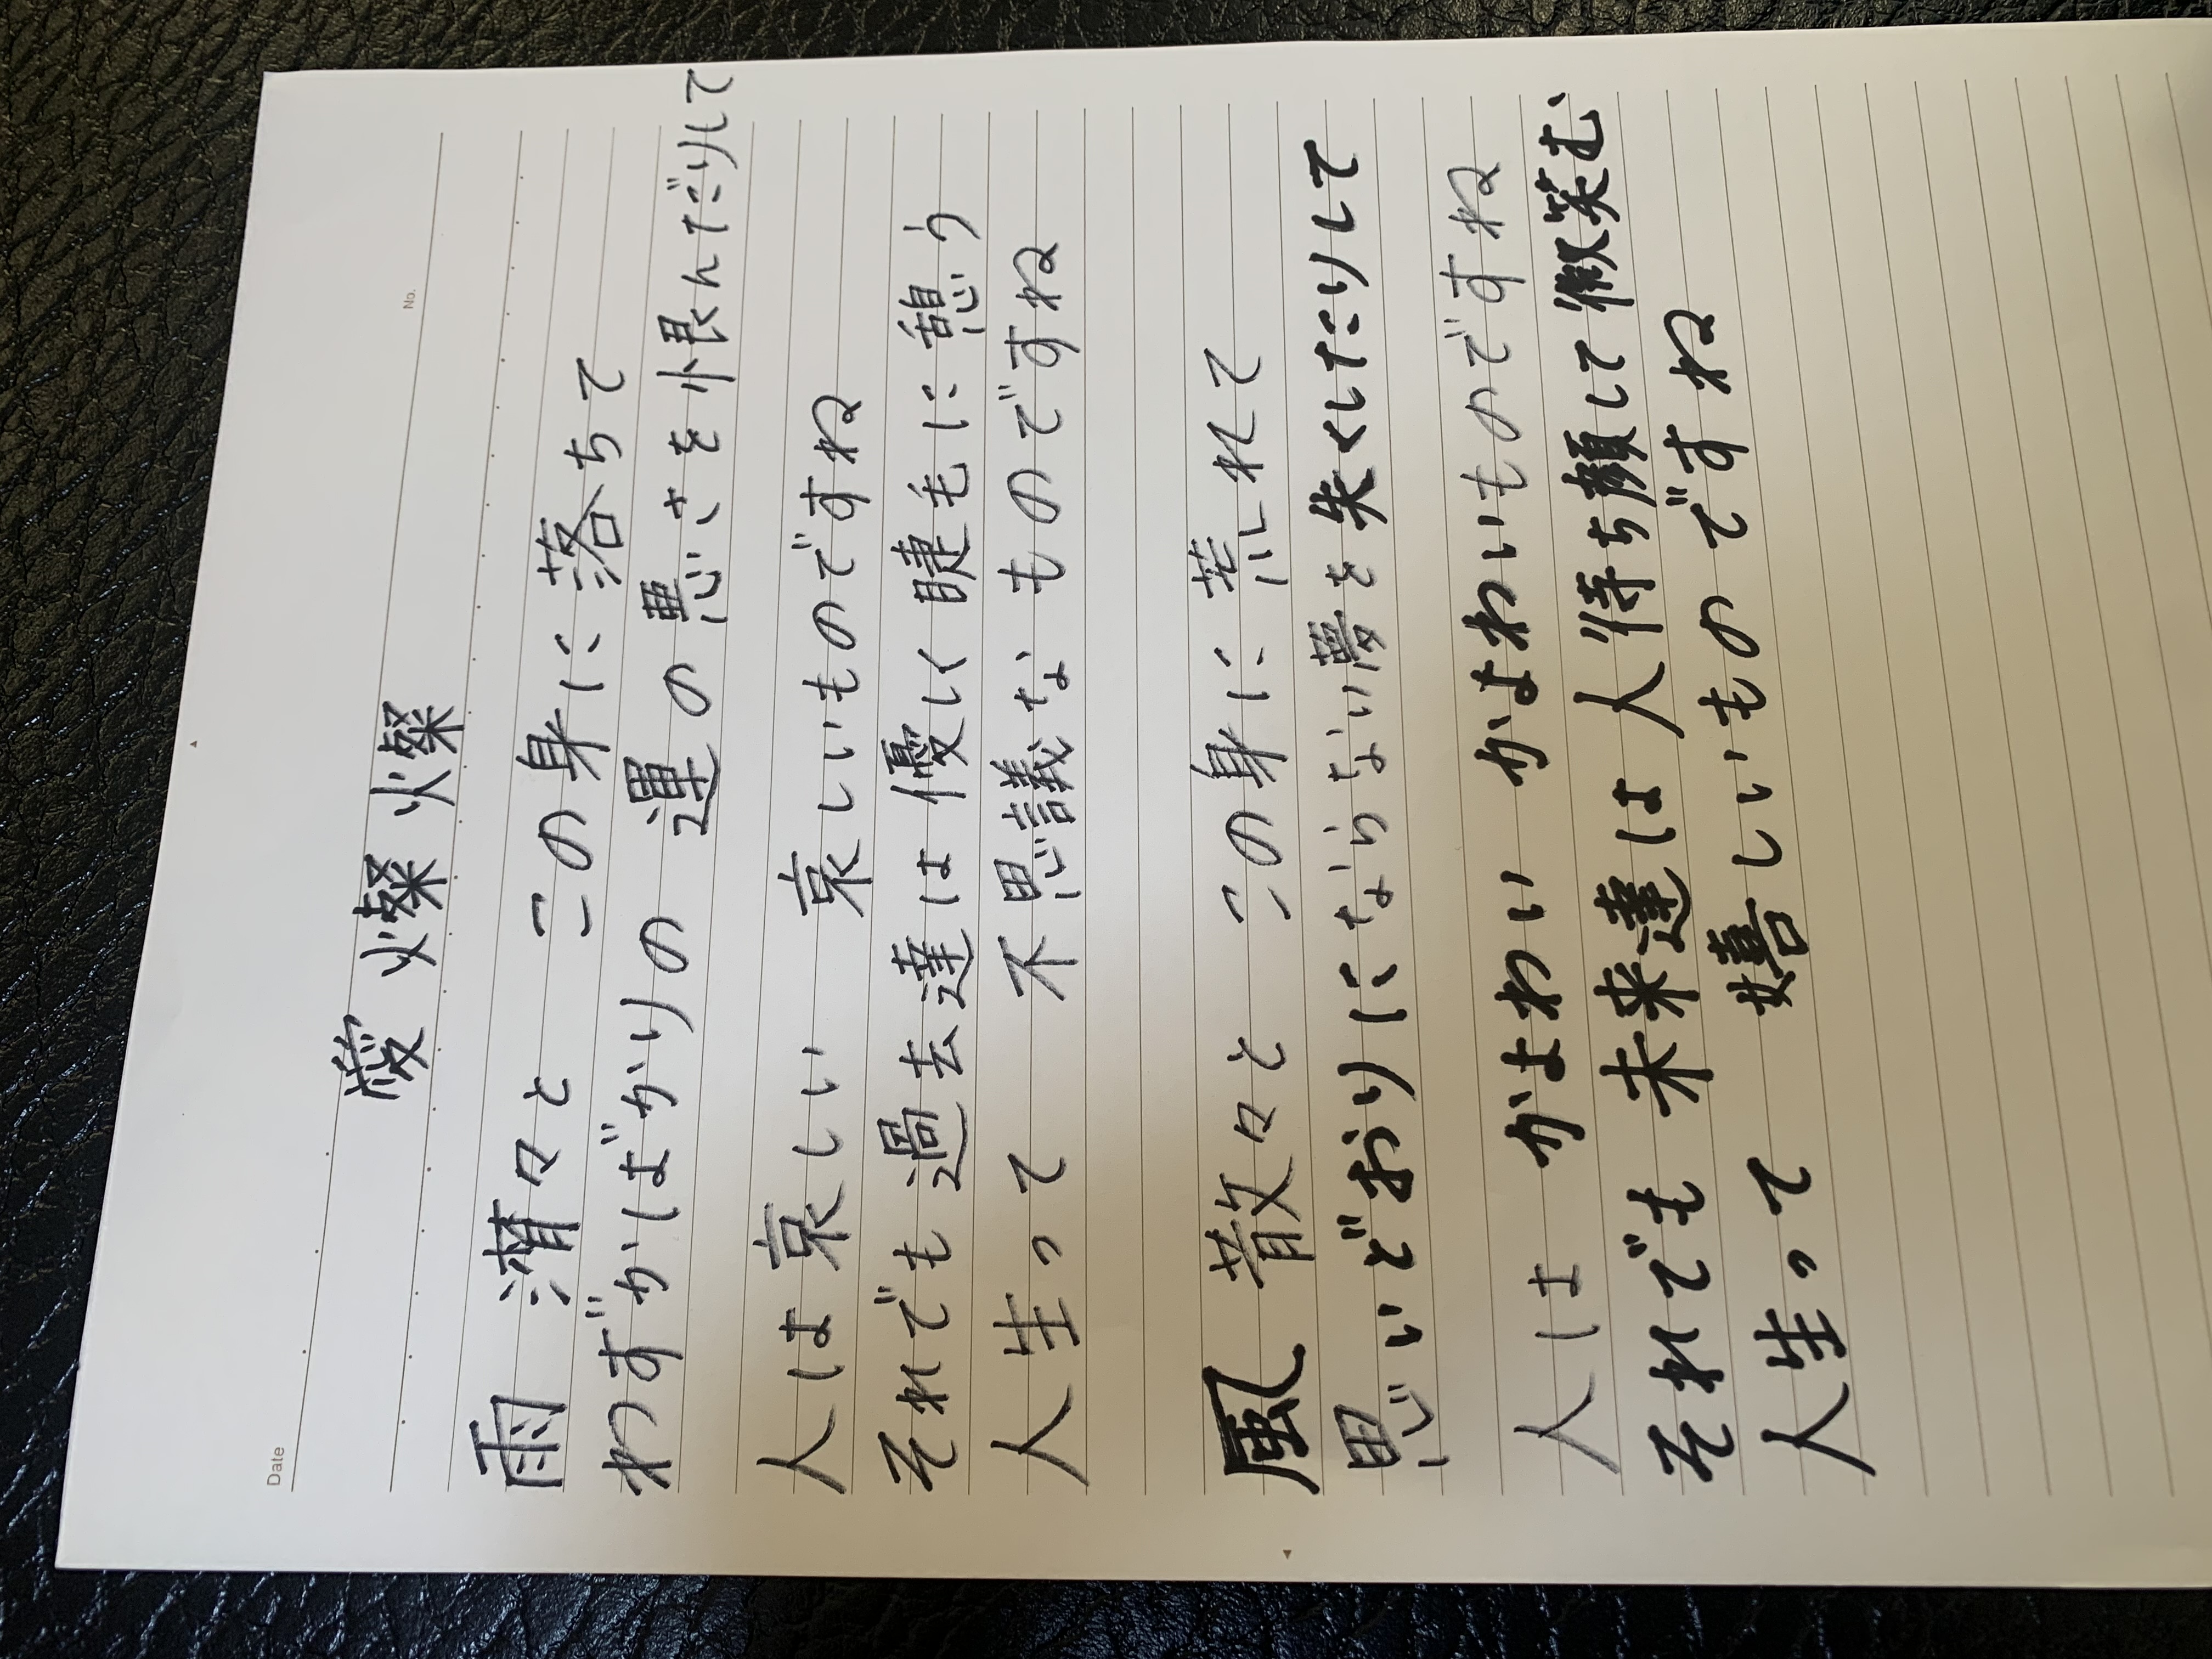 No.
Date
愛燦燦
雨 潸々と この身に落ちて
わずかばかりの 運の悪さを恨んだりして
人は哀しい 哀しいものですね
それでも過去達は優しく睫毛に憩う
人生って 不思議なものですね
風 散々と この身に荒れて
思いどおりにならない夢を失くしたりして
人は かよわい かよわいものですね
それでも 未来達は 人待ち顔して微笑む
人生って 嬉しいものですね